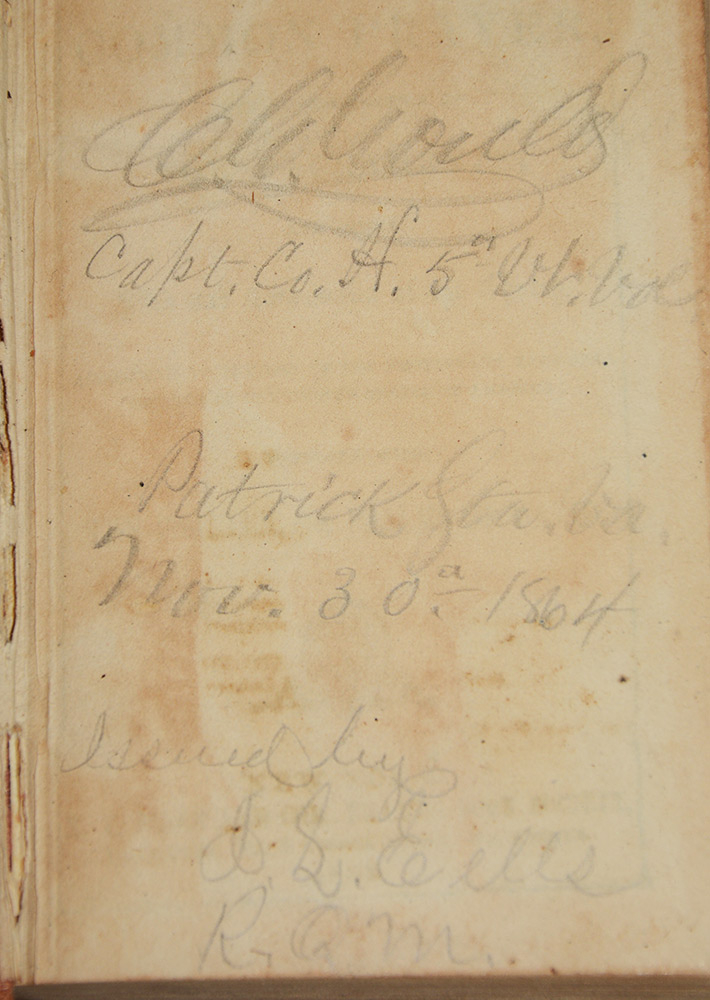 C. G. Gould
Capt. Co. H. 5" Vt. Vol
Patrick Sta. Va.
Nov. 30.ª 1864
Issued by
S. Eells
R. Q M.